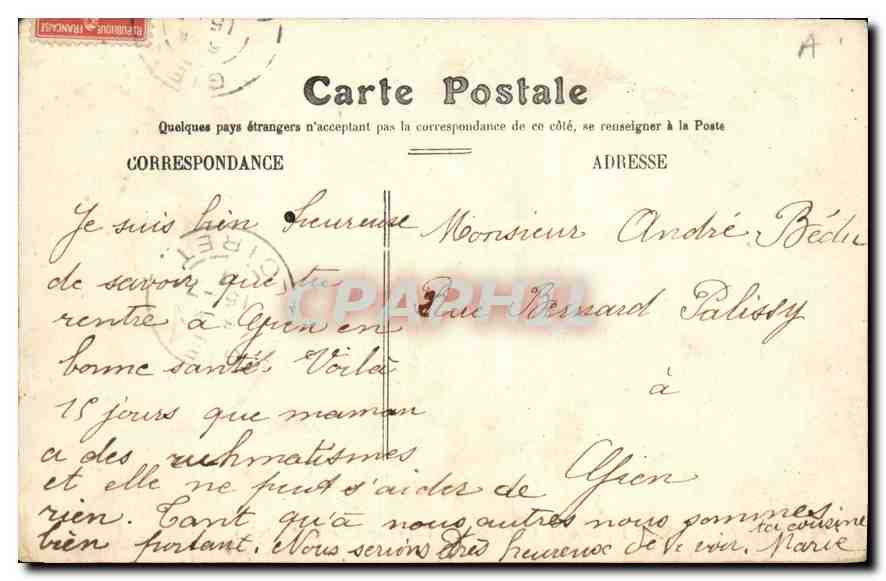 REPUBLIQUE FRANÇAISE
A
Carte Postale
Quelques pays étrangers n'acceptant pas la correspondance de ce côté, se renseigner à la Poste
CORRESPONDANCE
ADRESSE
Je suis bien heureuse
de savoir que tu
rentre à Gien en
bonne santé. Voilà
15 jours que maman
a des ruhmatismes
et elle ne peut s'aider de
rien. Tant qu'à nous autres nous sommes
bien portant. Nous serions très heureux de te voir.
ta cousine
Marie
Monsieur André Bédu
Rue Bernard Palissy
à
Gien
LOIRET
CPAPHIL